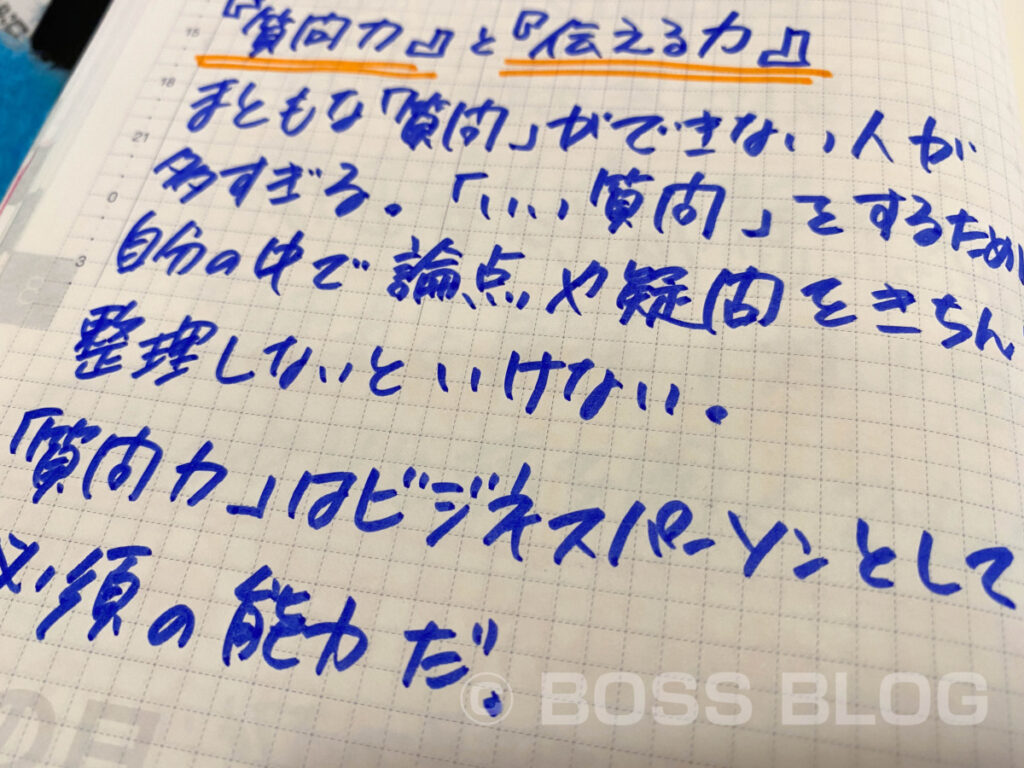 『質問力』と『伝える力』
15
まともな「質問」ができない人が
18
多すぎる。「いい質問」をするため
21
0
自分の中で論点や疑問をきちん
3
整理しないといけない。
8
「質問力」はビジネスパーソンとして
必須の能力だ。
の月
© BOSS BLOG